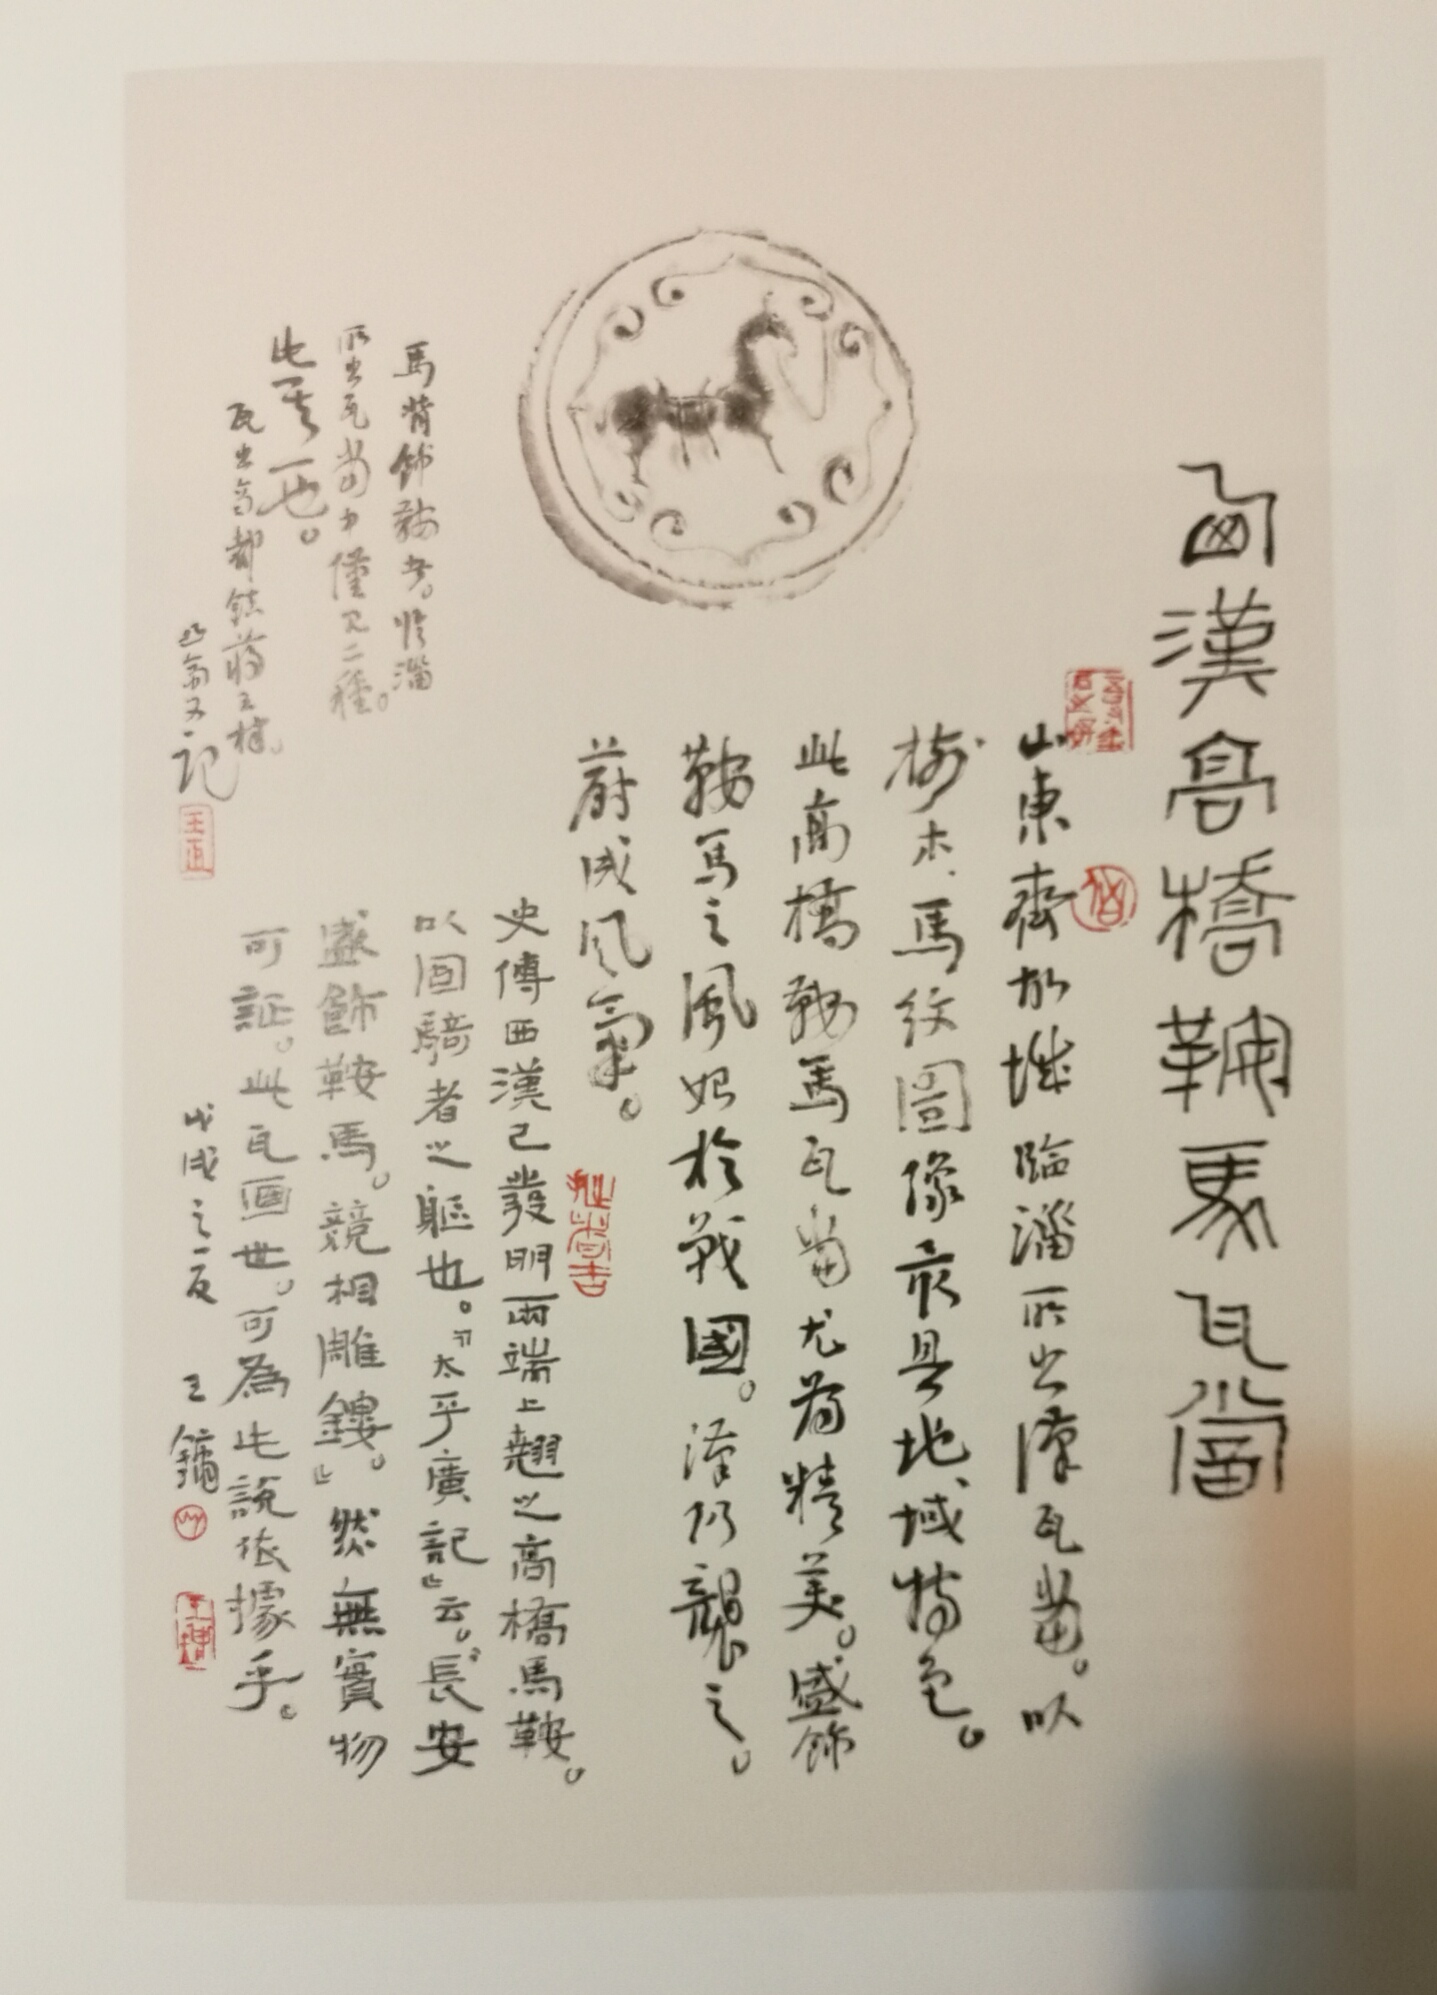 西漢高橋鞍馬瓦當
山東齊故城臨淄所出漢瓦當。以
樹木、馬紋圖像最具地域特色。
此高橋鞍馬瓦當尤為精美。盛飾
鞍馬之風始於戰國。漢仍襲之。
蔚成風氣。
史傳西漢已發明兩端上翹之高橋馬鞍。
以固騎者之軀也。『太平廣記』云。“長安
盛飾鞍馬。競相雕鏤。』然無實物
可証。此瓦画世。可為此說依據乎。
戊戌之夏 王鏞
馬背飾鞍者。臨淄
所出瓦當中僅見二種。
此其一也。
瓦出高都鎮蔣王村。
又記
王鏞